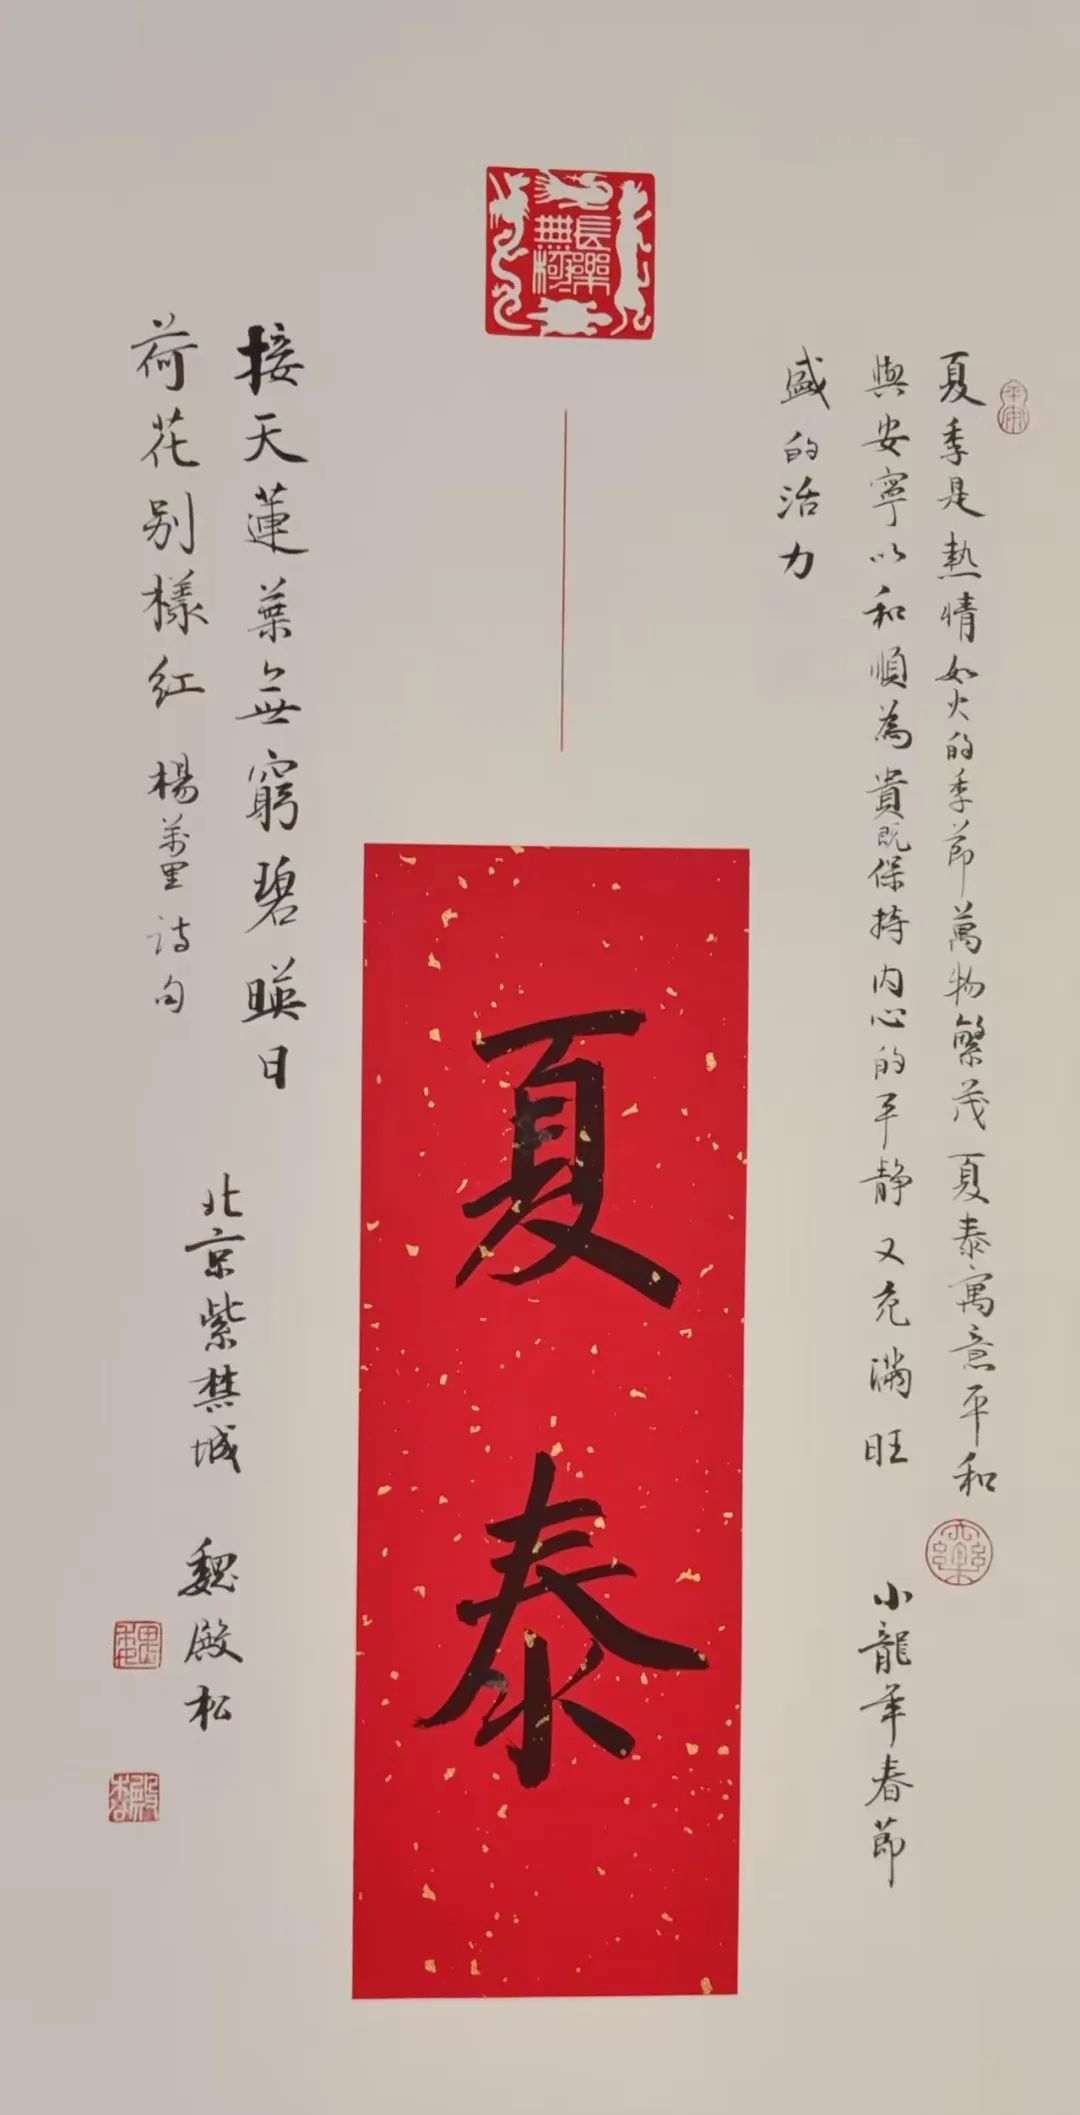 長樂無極
夏季是熱情如火的季節萬物繁茂夏泰寓意平和
與安寧以和順為貴既保持内心的平静又充滿旺
盛的活力
小龍年春節
夏泰
接天蓮葉無窮碧暎日
荷花别樣红 楊萬里詩句
北京紫禁城 魏殿松